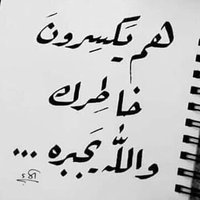 هم يَكسِرونَ
خاطِرك
واللّٰه يَجبره ...